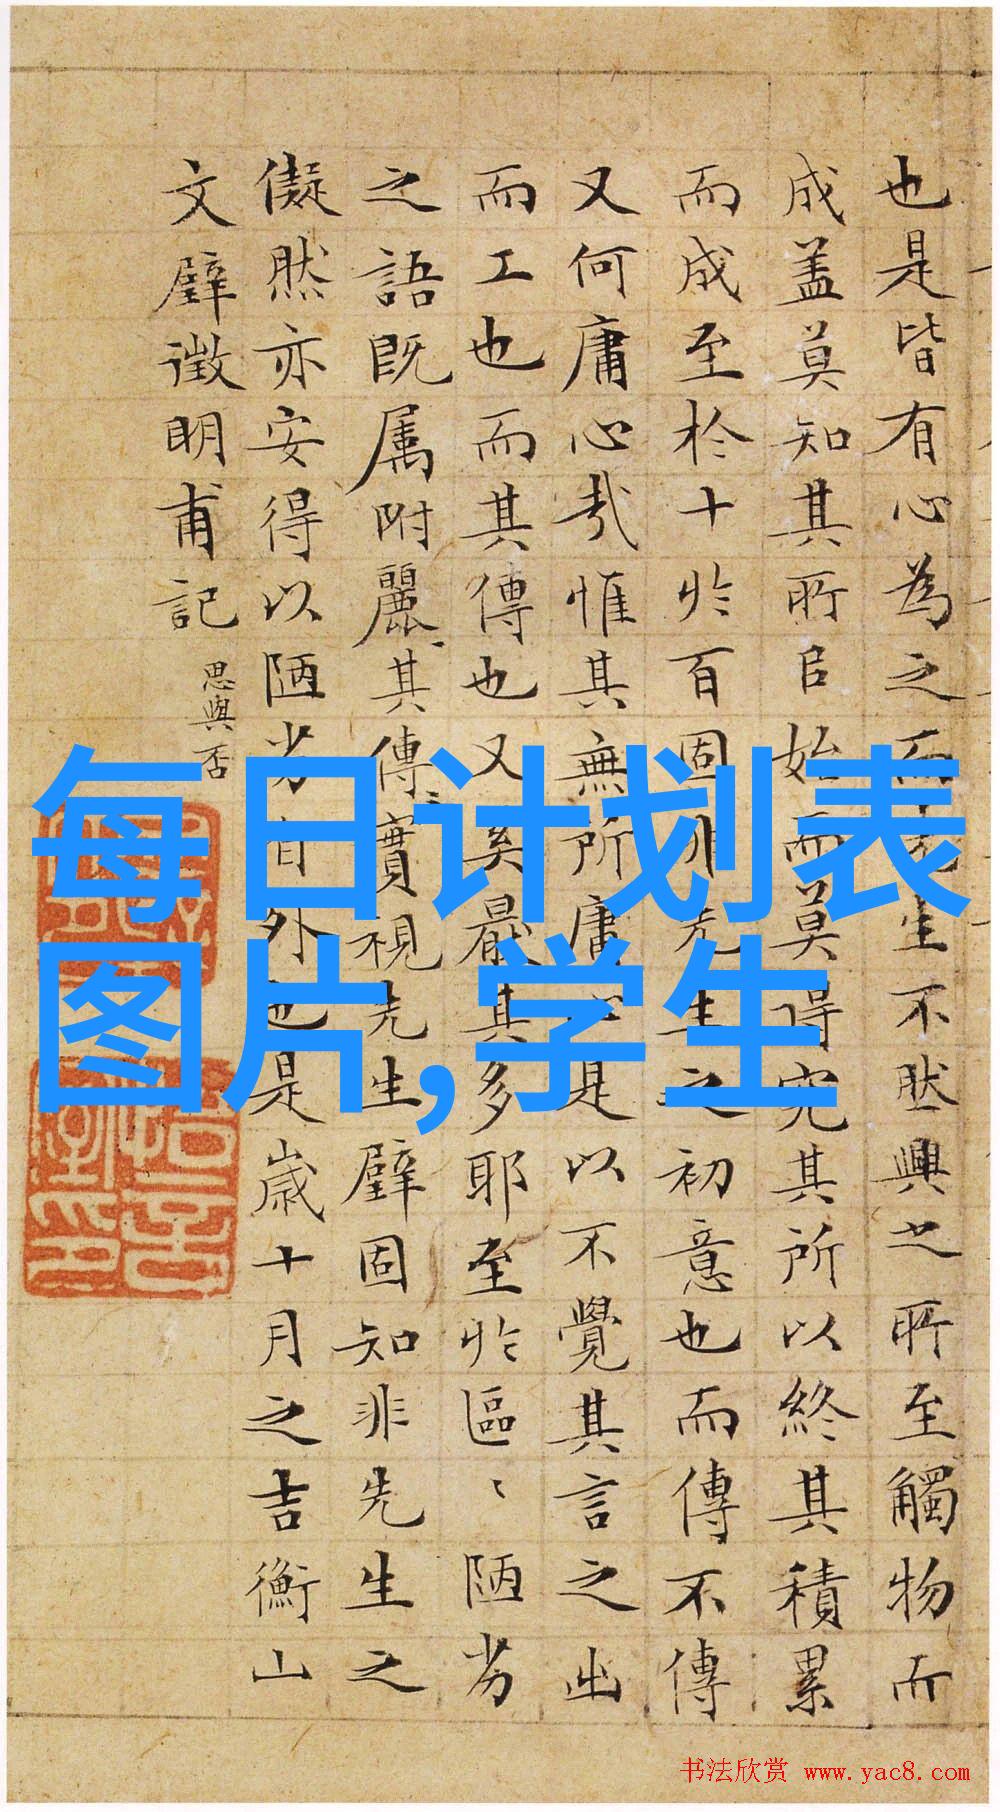 也是皆有心為之而先生不然興之所至觸物而
成盖莫知其所自始而莫得究其所以終其积累
而成至於十於百固非先生之初意也而傳不傳
又何庸心哉惟其無所庸心是以不覺其言之出
而工也而其傳也又奚最其多耶至於區〻陋劣
之語既属附麗其傳實視先生璧固知非先生之
儗然亦安得以陋劣自外也是歲十月之吉衡山
文璧徵明甫記
思與否
每日计划表
图片,学生
书法欣赏 www.yac8.com